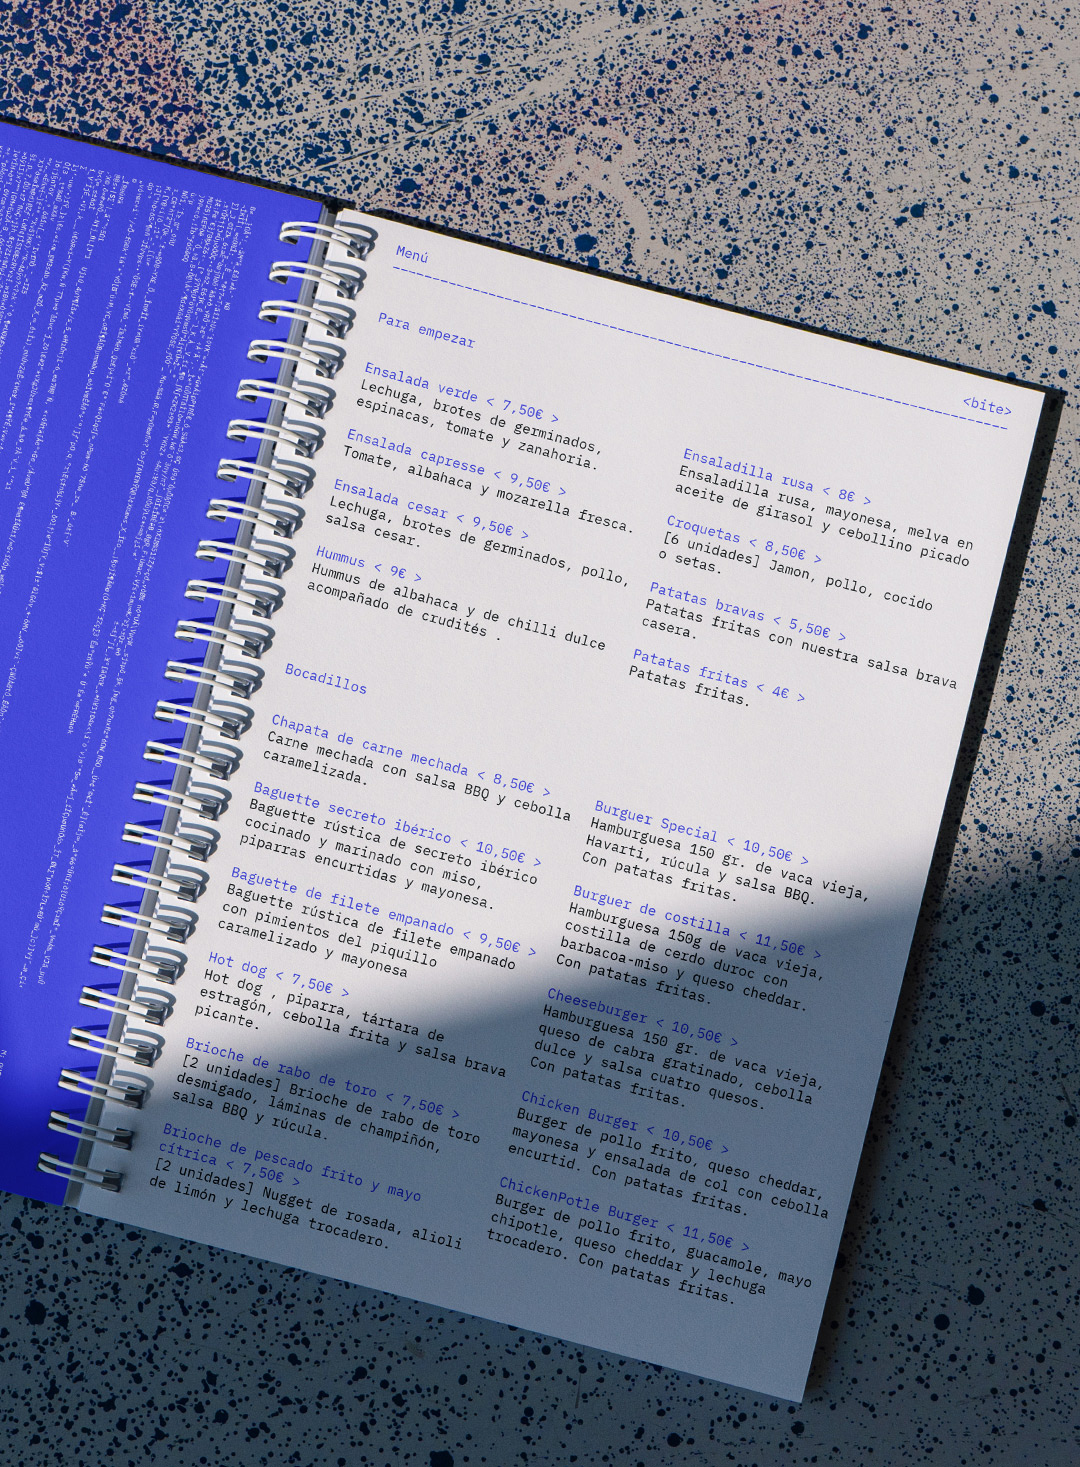 Menú
<bite>
Para empezar
Ensalada verde < 7,50€ >
Lechuga, brotes de germinados,
espinacas, tomate y zanahoria.
Ensalada capresse < 9,50€ >
Tomate, albahaca y mozarella fresca.
Ensalada cesar < 9,50€ >
Lechuga, brotes de germinados, pollo,
salsa cesar.
Hummus < 9€ >
Hummus de albahaca y de chilli dulce
acompañado de crudités .
Ensaladilla rusa < 8€ >
Ensaladilla rusa, mayonesa, melva en
aceite de girasol y cebollino picado
Croquetas < 8,50€ >
[6 unidades] Jamon, pollo, cocido
o setas.
Patatas bravas < 5,50€ >
Patatas fritas con nuestra salsa brava
casera.
Patatas fritas < 4€ >
Patatas fritas.
Bocadillos
Chapata de carne mechada < 8,50€ >
Carne mechada con salsa BBQ y cebolla
caramelizada.
Baguette secreto ibérico < 10,50€ >
Baguette rústica de secreto ibérico
cocinado y marinado con miso,
piparras encurtidas y mayonesa.
Baguette de filete empanado < 9,50€ >
Baguette rústica de filete empanado
con pimientos del piquillo
caramelizado y mayonesa
Hot dog < 7,50€ >
Hot dog , piparra, tártara de
estragón, cebolla frita y salsa brava
picante.
Brioche de rabo de toro < 7,50€ >
[2 unidades] Brioche de rabo de toro
desmigado, láminas de champiñón,
salsa BBQ y rúcula.
Brioche de pescado frito y mayo
cítrica < 7,50€ >
[2 unidades] Nugget de rosada, alioli
de limón y lechuga trocadero.
Burguer Special < 10,50€ >
Hamburguesa 150 gr. de vaca vieja,
Havarti, rúcula y salsa BBQ.
Con patatas fritas.
Burguer de costilla < 11,50€ >
Hamburguesa 150g de vaca vieja,
costilla de cerdo duroc con
barbacoa-miso y queso cheddar.
Con patatas fritas.
Cheeseburger < 10,50€ >
Hamburguesa 150 gr. de vaca vieja,
queso de cabra gratinado, cebolla
dulce y salsa cuatro quesos.
Con patatas fritas.
Chicken Burger < 10,50€ >
Burger de pollo frito, queso cheddar,
mayonesa y ensalada de col con cebolla
encurtid. Con patatas fritas.
ChickenPotle Burger < 11,50€ >
Burger de pollo frito, guacamole, mayo
chipotle, queso cheddar y lechuga
trocadero. Con patatas fritas.